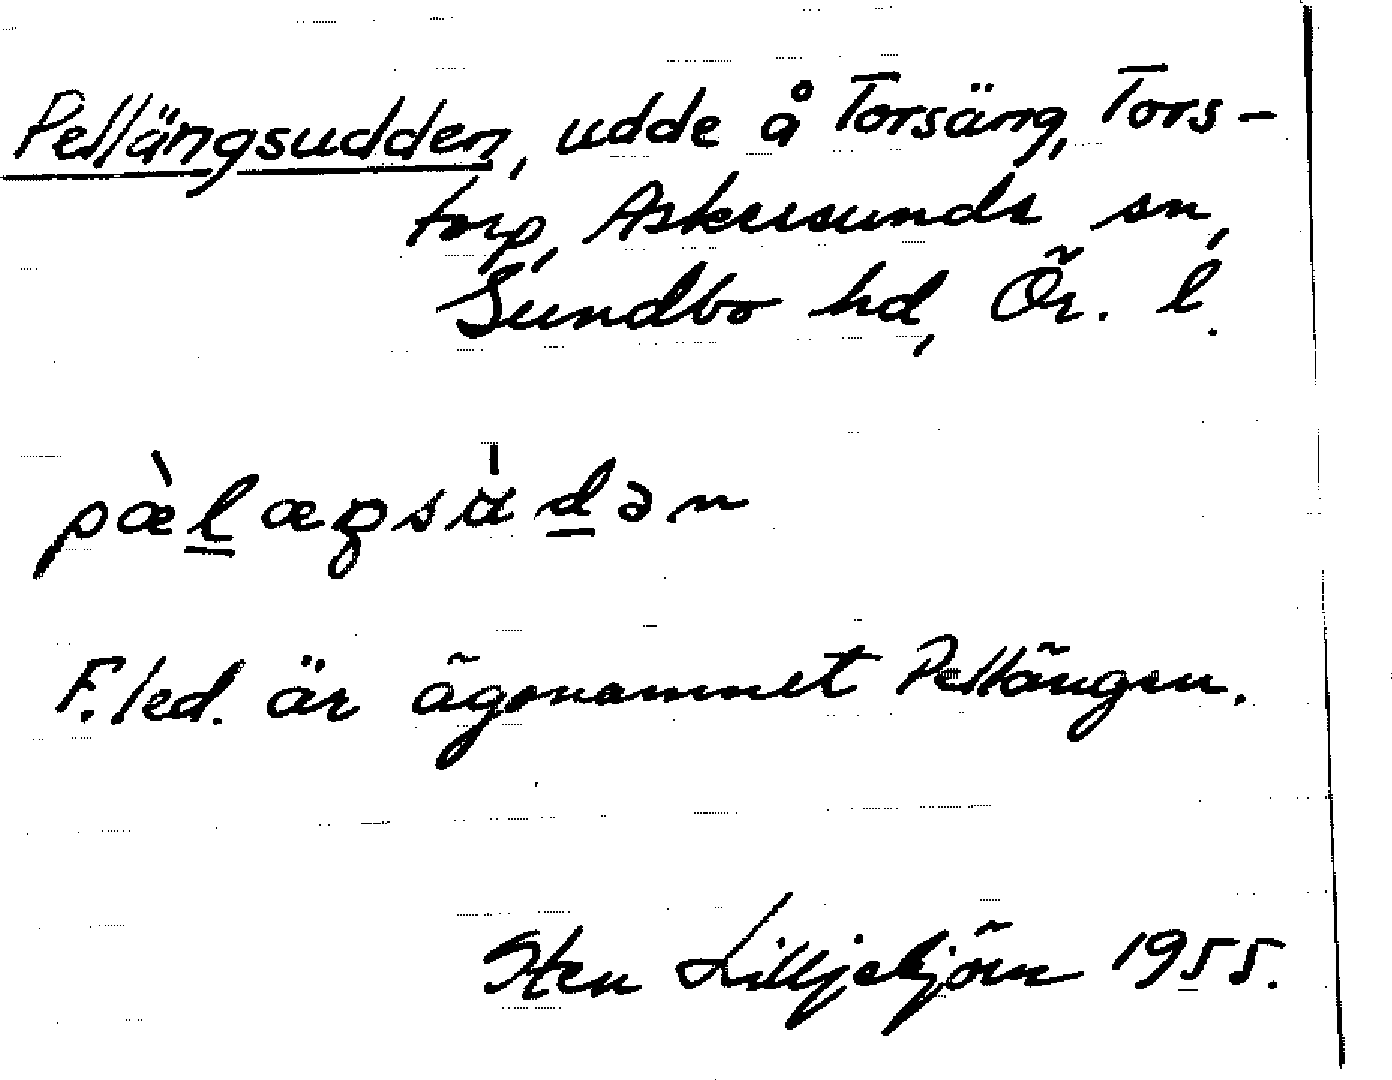 Pellängsudden, udde å Torsäng, Tors-
torp, Askersunds sn,
Sundbo hd, Ör. l.
pæ̀l̲æŋsùd̲ən
F. led. är ägonamnet Pellängen.
Sten Lilljebjörn 1955.